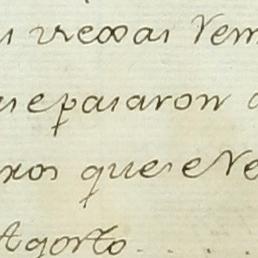 viexas Rem
se pasaron
ros que se Re
Agosto. . . .